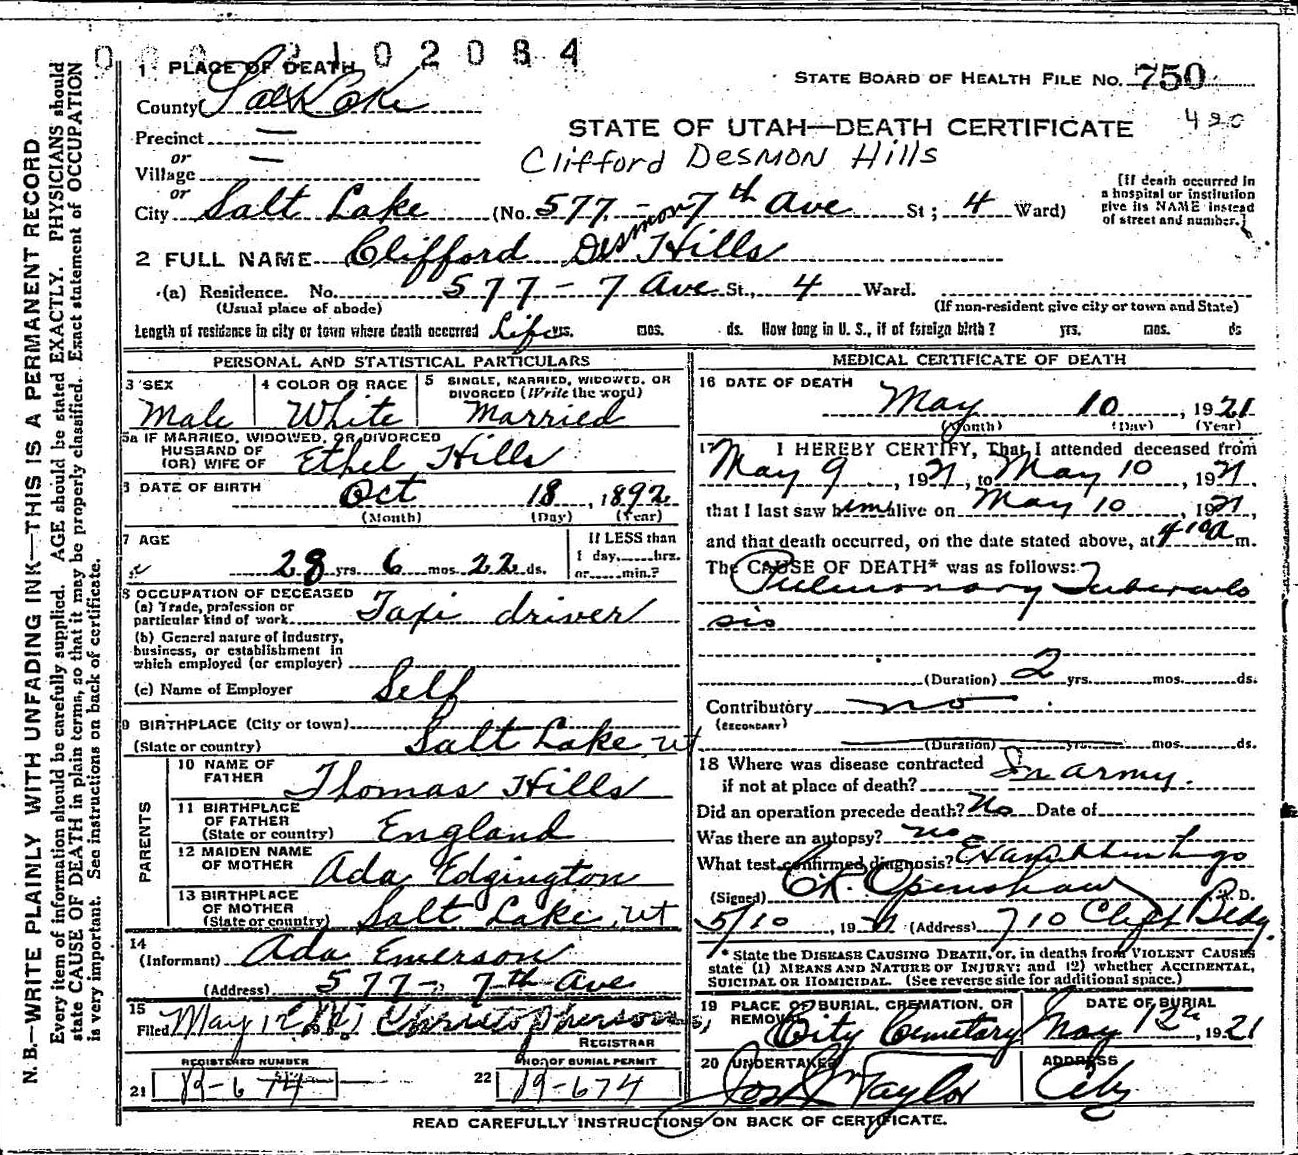 2102084
1 PLACE OF DEATH
STATE BOARD OF HEALTH FILE NO. 750
County Salt Lake
420
Precinct —
STATE OF UTAH—DEATH CERTIFICATE
or
Village —
Clifford Desmon Hills
or
City Salt Lake (No. 577 - 7th Ave St; 4 Ward)
[If death occurred in
a hospital or institution
give its NAME instead
of street and number.]
2 FULL NAME Clifford Desmon Hills
(a) Residence. No. 577 - 7 Ave St., 4 Ward.
(Usual place of abode) (If non-resident give city or town and State)
Length of residence in city or town where death occurred Life yrs. mos. ds. How long in U. S., if of foreign birth? yrs. mos. ds
PERSONAL AND STATISTICAL PARTICULARS
3 SEX
Male
4 COLOR OR RACE
White
5 SINGLE, MARRIED, WIDOWED, OR
DIVORCED (Write the word)
Married
5a IF MARRIED, WIDOWED, OR DIVORCED
HUSBAND OF
(OR) WIFE OF Ethel Hills
6 DATE OF BIRTH Oct 18, 1892
(Month) (Day) (Year)
7 AGE
28 yrs. 6 mos. 22 ds.
If LESS than
1 day, hrs.
or min.?
8 OCCUPATION OF DECEASED
(a) Trade, profession or
particular kind of work Taxi driver
(b) General nature of Industry,
business, or establishment in
which employed (or employer)
(c) Name of Employer Self
9 BIRTHPLACE (City or town)
(State or country) Salt Lake, Ut
PARENTS
10 NAME OF
FATHER Thomas Hills
11 BIRTHPLACE
OF FATHER
(State or country) England
12 MAIDEN NAME
OF MOTHER Ada Edgington
13 BIRTHPLACE
OF MOTHER
(State or country) Salt Lake, Ut
14
(Informant) Ada Emerson
(Address) 577 - 7th Ave
15
Filed May 12 Christopherson
REGISTRAR
REGISTERED NUMBER
21 19-674
NO. OF BURIAL PERMIT
22 19-674
MEDICAL CERTIFICATE OF DEATH
16 DATE OF DEATH
May 10, 1921
(Month) (Day) (Year)
17 I HEREBY CERTIFY, That I attended deceased from
May 9, 1921, to May 10, 1921
that I last saw him alive on May 10, 1921,
and that death occurred, on the date stated above, at 4 10 a m.
The CAUSE OF DEATH* was as follows:
Pulmonary Tuberculo
sis
(Duration) 2 yrs. mos. ds.
Contributory no
(SECONDARY)
(Duration) yrs. mos. ds.
18 Where was disease contracted
if not at place of death? In army.
Did an operation precede death? No Date of
Was there an autopsy? no
What test confirmed diagnosis?
(Signed) C.R. Openshaw M. D.
5/10, 1921 (Address) 710 Clift Bldg.
* State the DISEASE CAUSING DEATH, or, in deaths from VIOLENT CAUSES
state (1) MEANS AND NATURE OF INJURY; and (2) whether ACCIDENTAL,
SUICIDAL OR HOMICIDAL. (See reverse side for additional space.)
19 PLACE OF BURIAL, CREMATION, OR
REMOVAL City Cemetary
DATE OF BURIAL
May 12th, 1921
20 UNDERTAKER
Jos Wm Taylor
ADDRESS
City
READ CAREFULLY INSTRUCTIONS ON BACK OF CERTIFICATE.
N. B.—WRITE PLAINLY WITH UNFADING INK—THIS IS A PERMANENT RECORD
Every item of information should be carefully supplied. AGE should be stated EXACTLY. PHYSICIANS should
state CAUSE OF DEATH in plain terms, so that it may be properly classified. Exact statement of OCCUPATION
is very important. See instructions on back of certificate.